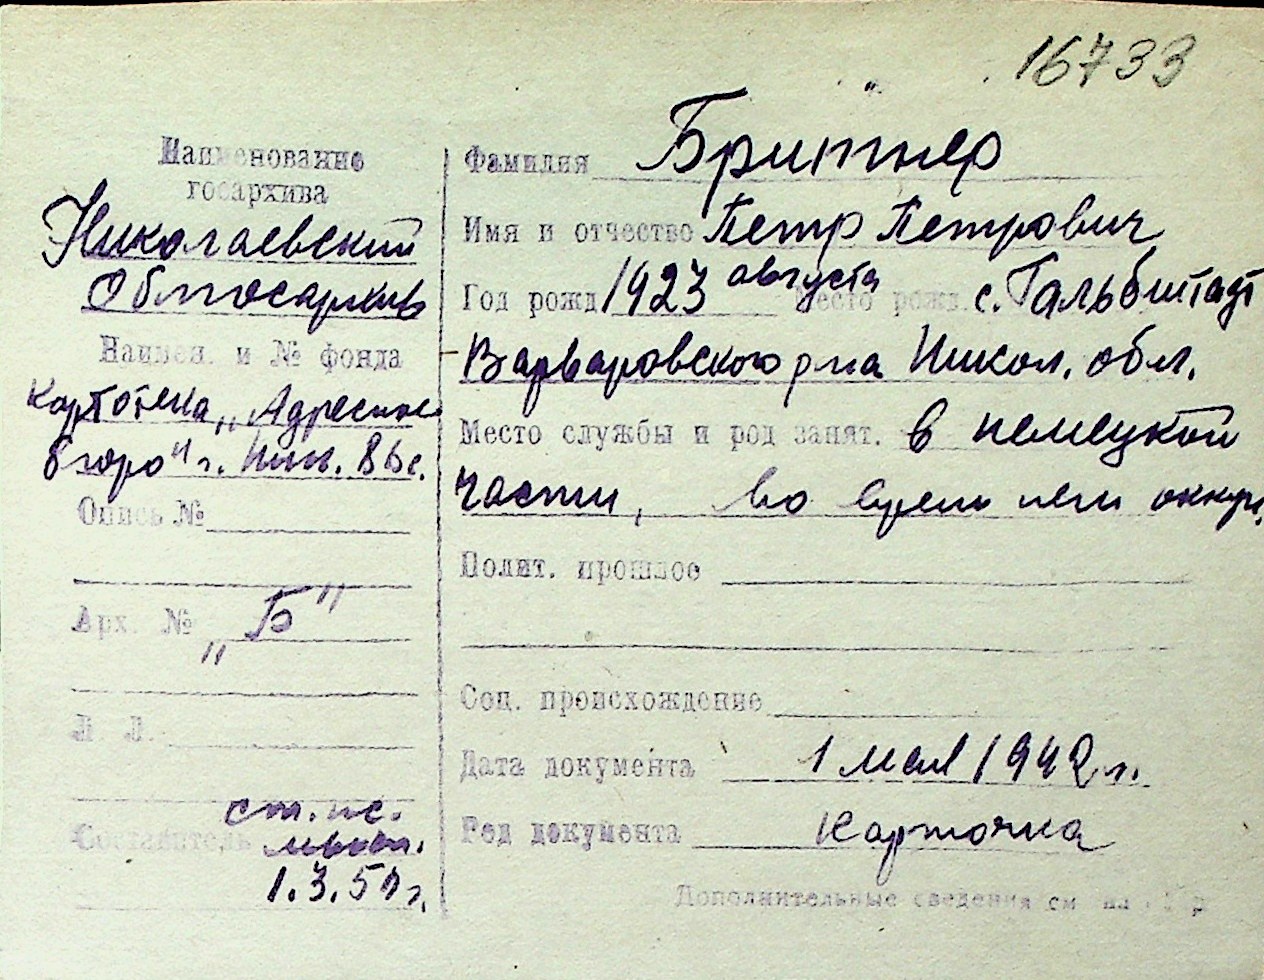 16733
Наименование
госархива
Николаевский
Облгосархив
Наимен. и № фонда
Картотека „Адресное
бюро" г. Ник.
Опись №
Арх. № „Б"
Л. Л.
Составитель
1.3.51 г.
Фамилия Бритнер
Имя и отчество Петр Петрович
Год рожд 1923 августа Место рожд. с. Гальбштадт
Варваровского р-на Никол. обл.
Место службы и род занят. в немецкой
части, во время нем оккуп.
Полит. прошлое
Соц. происхождение
Дата документа 1 мая 1942 г.
Род документа Карточка
Дополнительные сведения см на